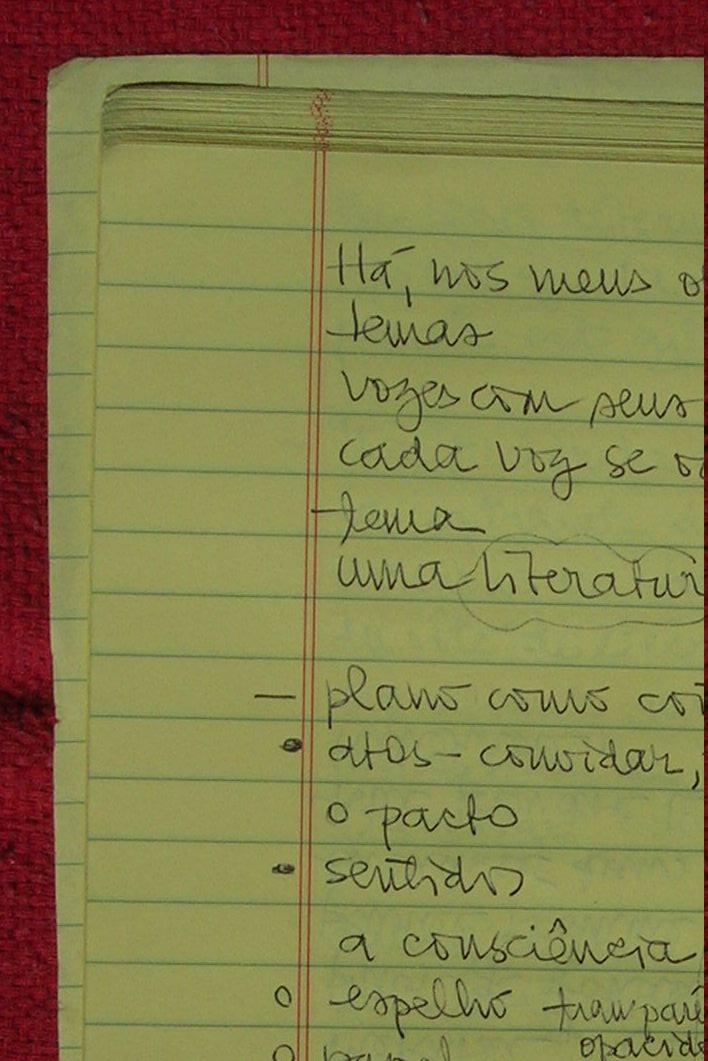 Há, nos meus o
temas
vozes com seus
cada voz se o
tema
uma literatur
— plano como coi
• atos - convidar,
o pacto
• sentidos
a consciência
o espelho transparê
opacid
o papel